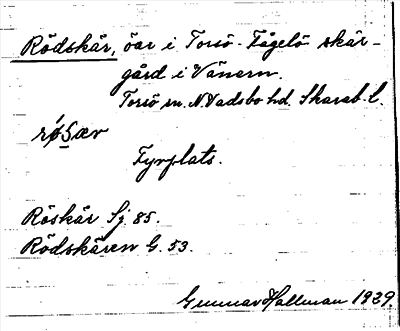 Rödskär, öar i Torsö-Fågelö skär-
gård i Vänern.
Torsö sn. N. Vadsbo hd. Skarab. l.
rø̀Sær
Fyrplats.
Röskär Sj 85.
Rödskären G. 53.
Gunnar Hallman 1929.